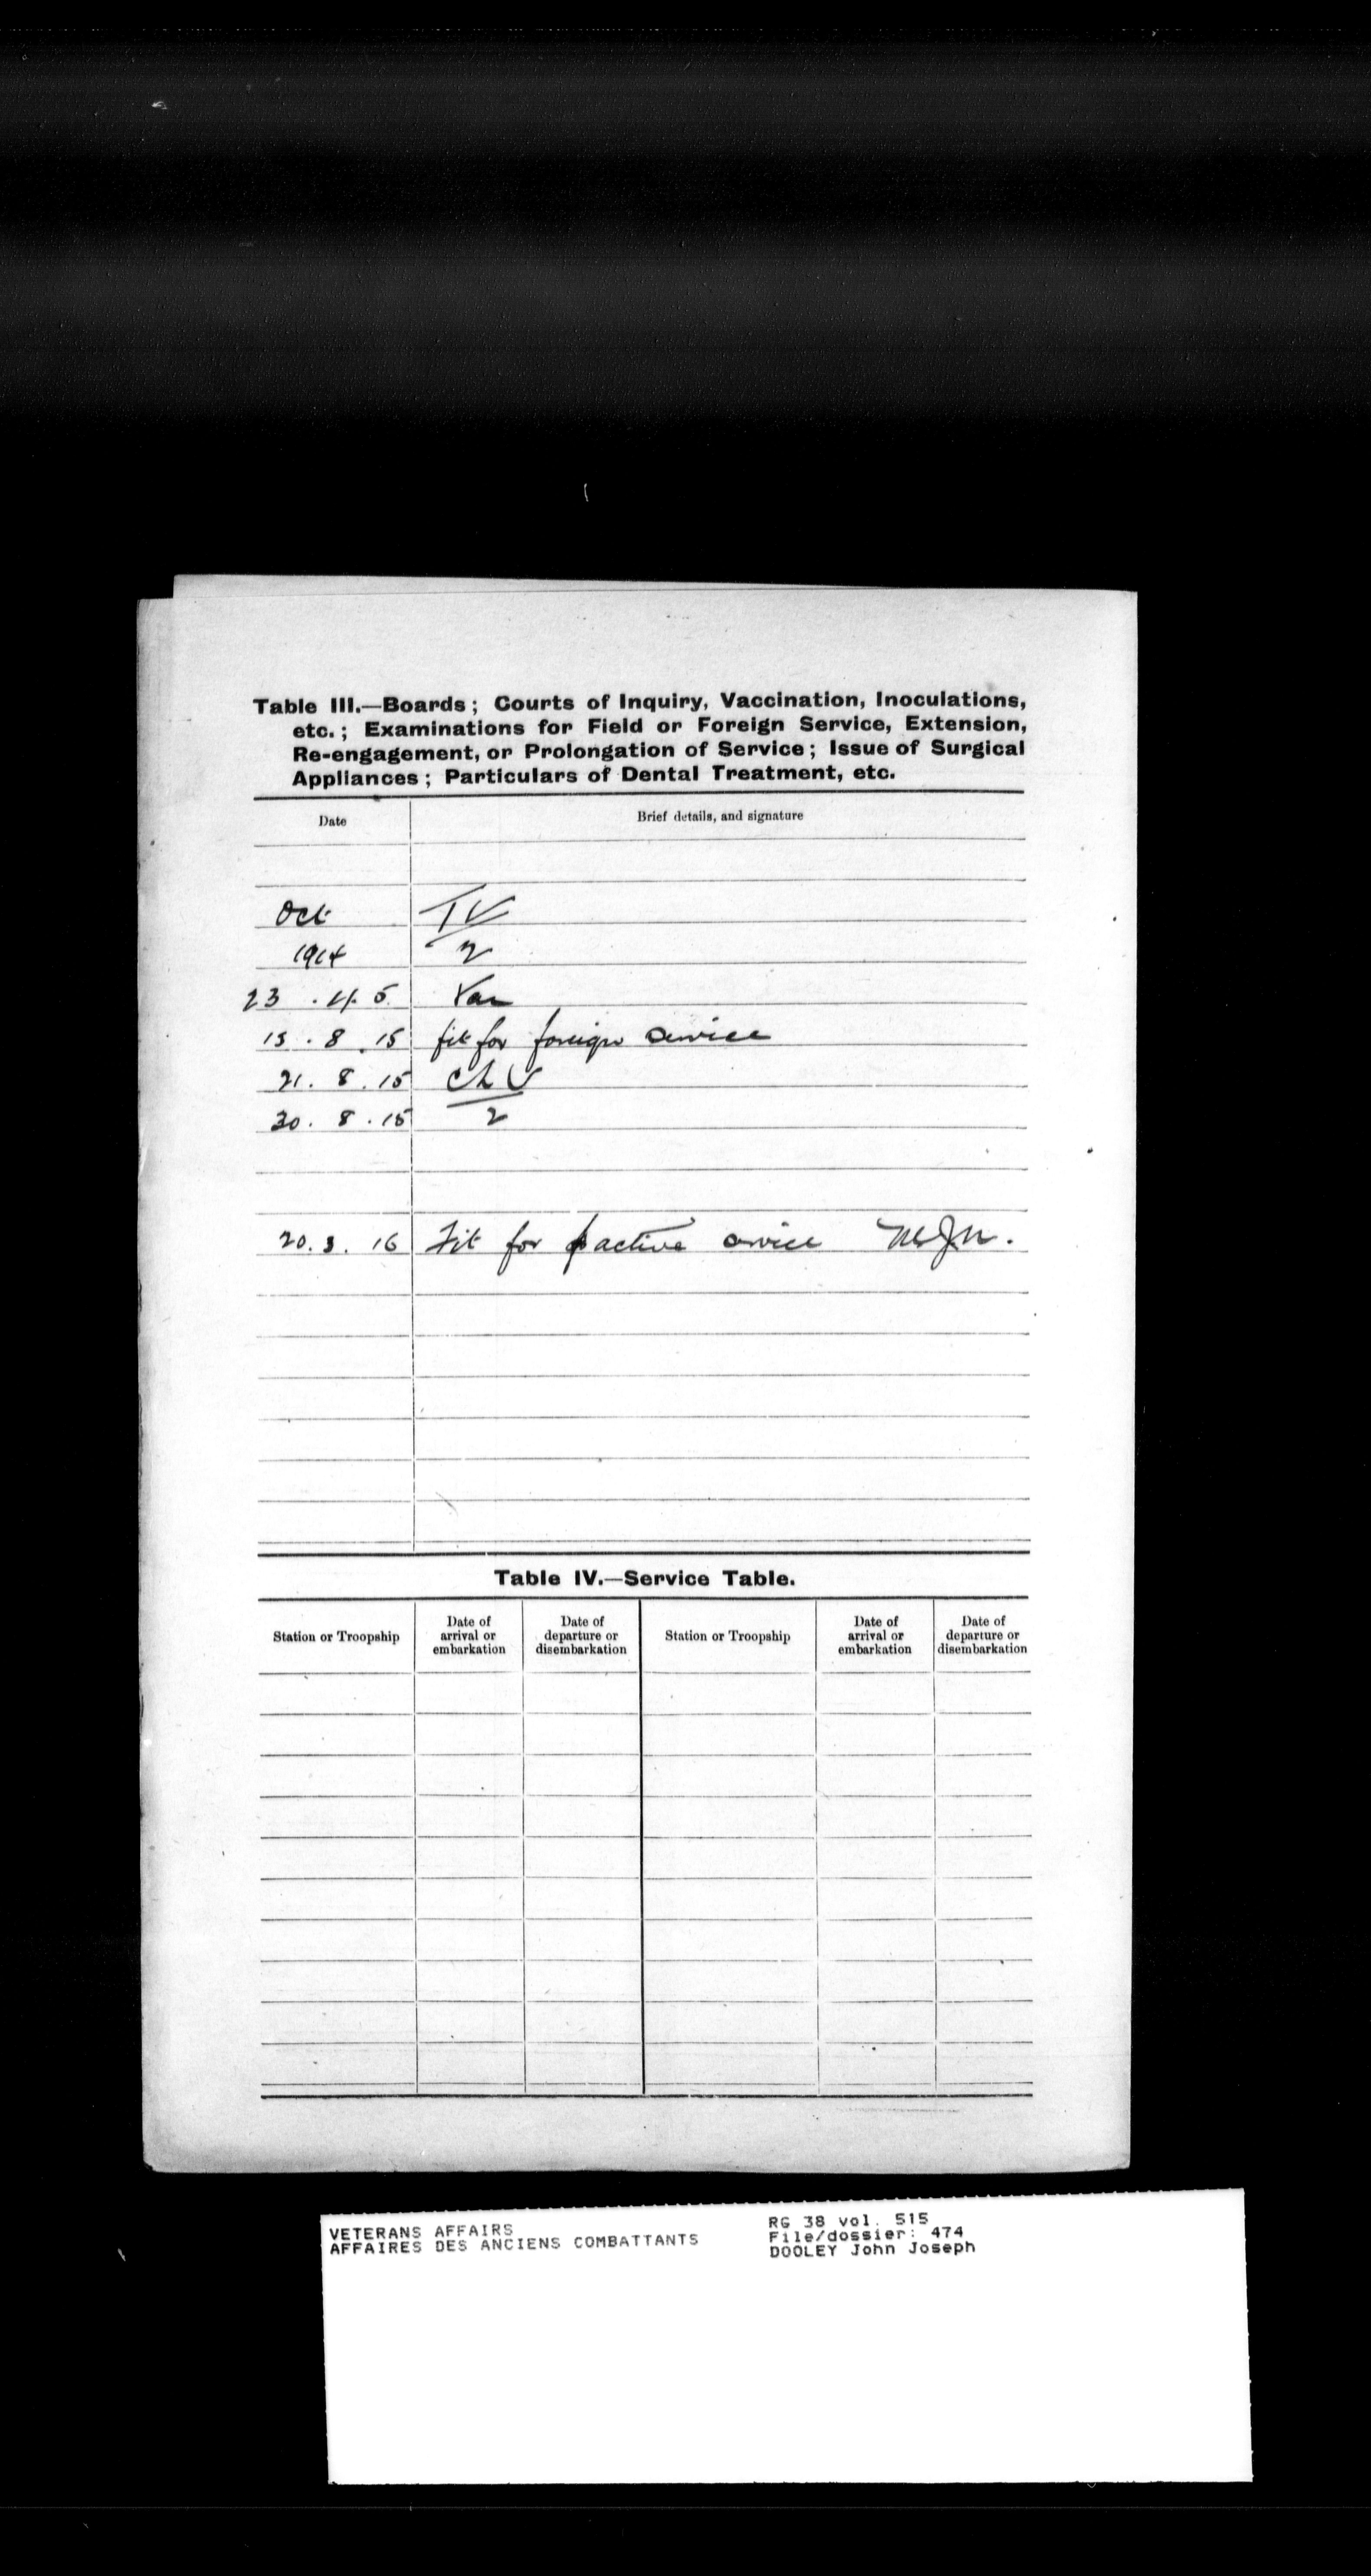 Table III.—Boards; Courts of Inquiry, Vaccination, Inoculations,
etc.; Examinations for Field or Foreign Service, Extension,
Re-engagement, or Prolongation of Service; Issue of Surgical
Appliances; Particulars of Dental Treatment, etc.
Date Brief details, and signature
Oct TV
1914 2
23 . 4. 5.
15 . 8 . 15 fit for foreign service
21 . 8 . 15 Ch V
30 . 8 . 15 2
20. 3. 16 Fit for active service
Table IV.—Service Table.
Station or Troopship Date of arrival or embarkation Date of departure or disembarkation Station or Troopship Date of arrival or embarkation Date of departure or disembarkation
VETERANS AFFAIRS RG 38 vol. 515
AFFAIRES DES ANCIENS COMBATTANTS File/dossier: 474
DOOLEY John Joseph